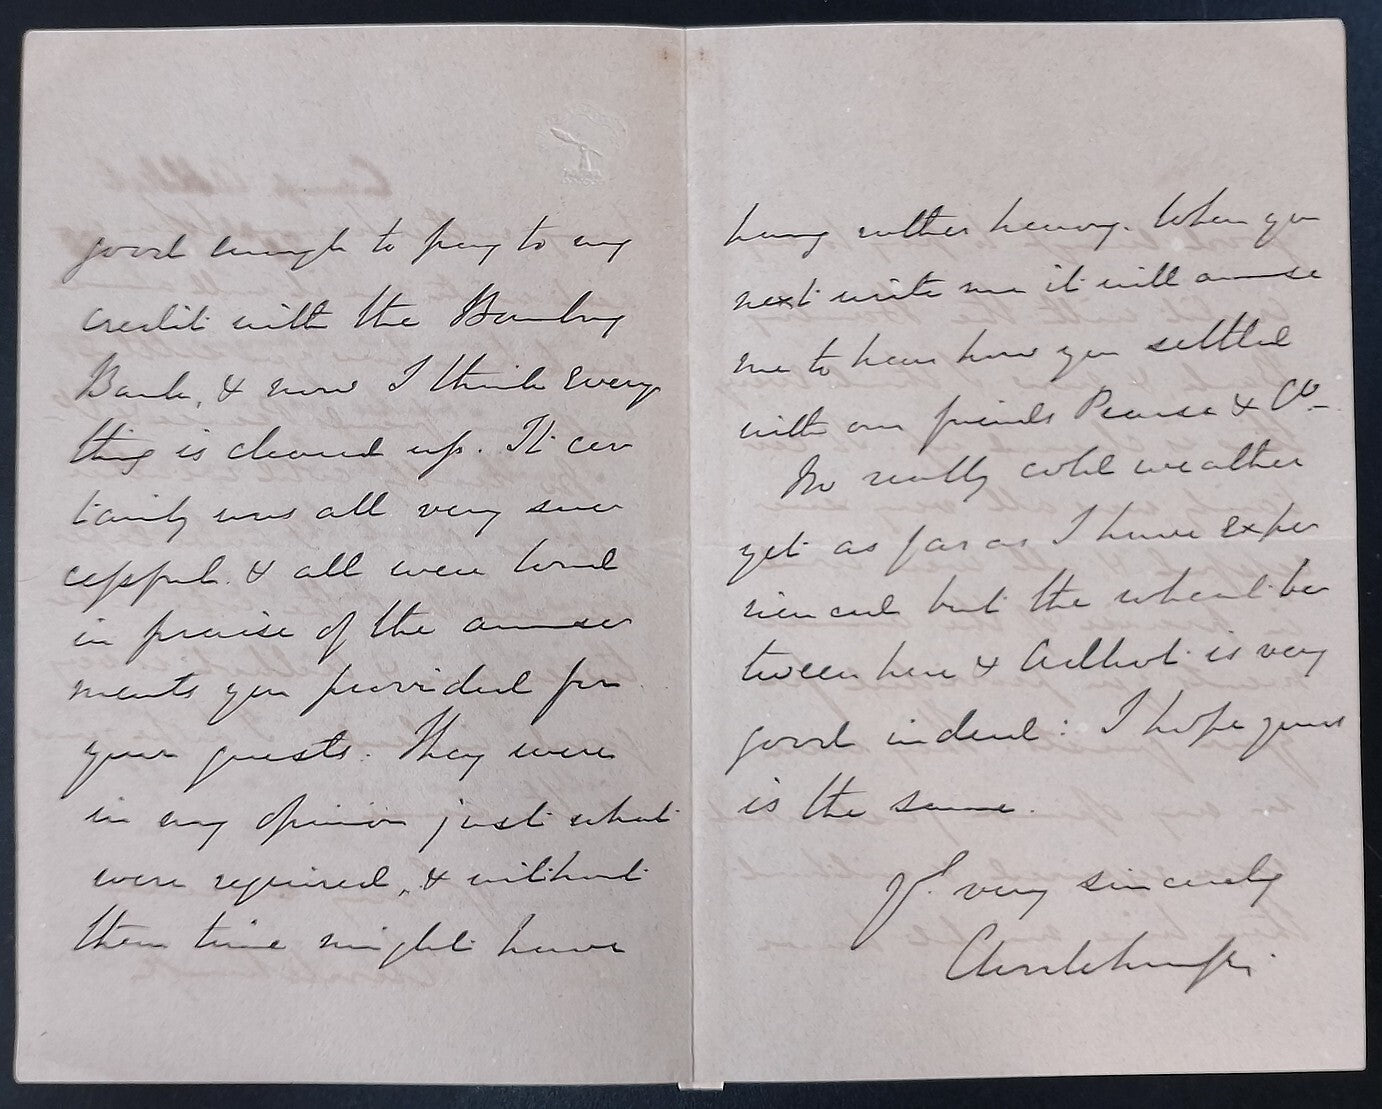 good enough to pay to my
credit with the Bombay
Bank, & now I think every
thing is cleared up. It cer
tainly was all very suc
cessful & all were loud
in praise of the amuse
ments you provided for
your guests. They were
in my opinion just what
were required, & without
them time might have
hung rather heavy. When you
next write me it will amuse
me to hear how you settled
with our friends Pearse & Co
No really cold weather
yet as far as I have exper
ienced but the wheat be
tween here & is very
good indeed: I hope yours
is the same.
Yrs very sincerely